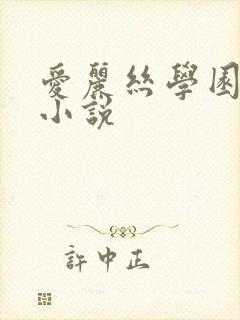 愛麗絲學園
小說
許中正